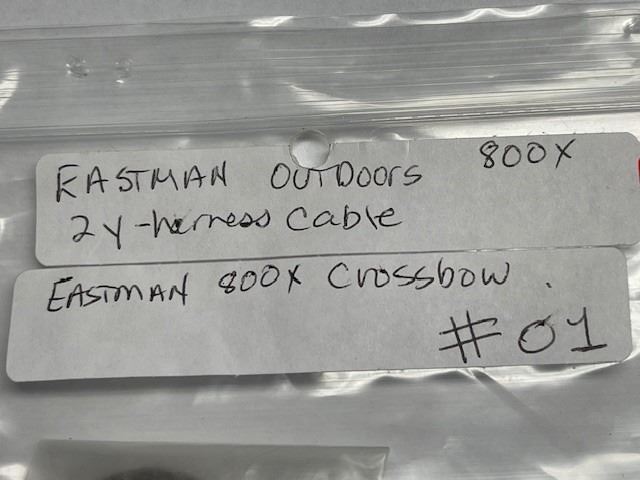 EASTMAN OUTDOORS 800X
2 Y-harness Cable
EASTMAN 800X Crossbow.
#01